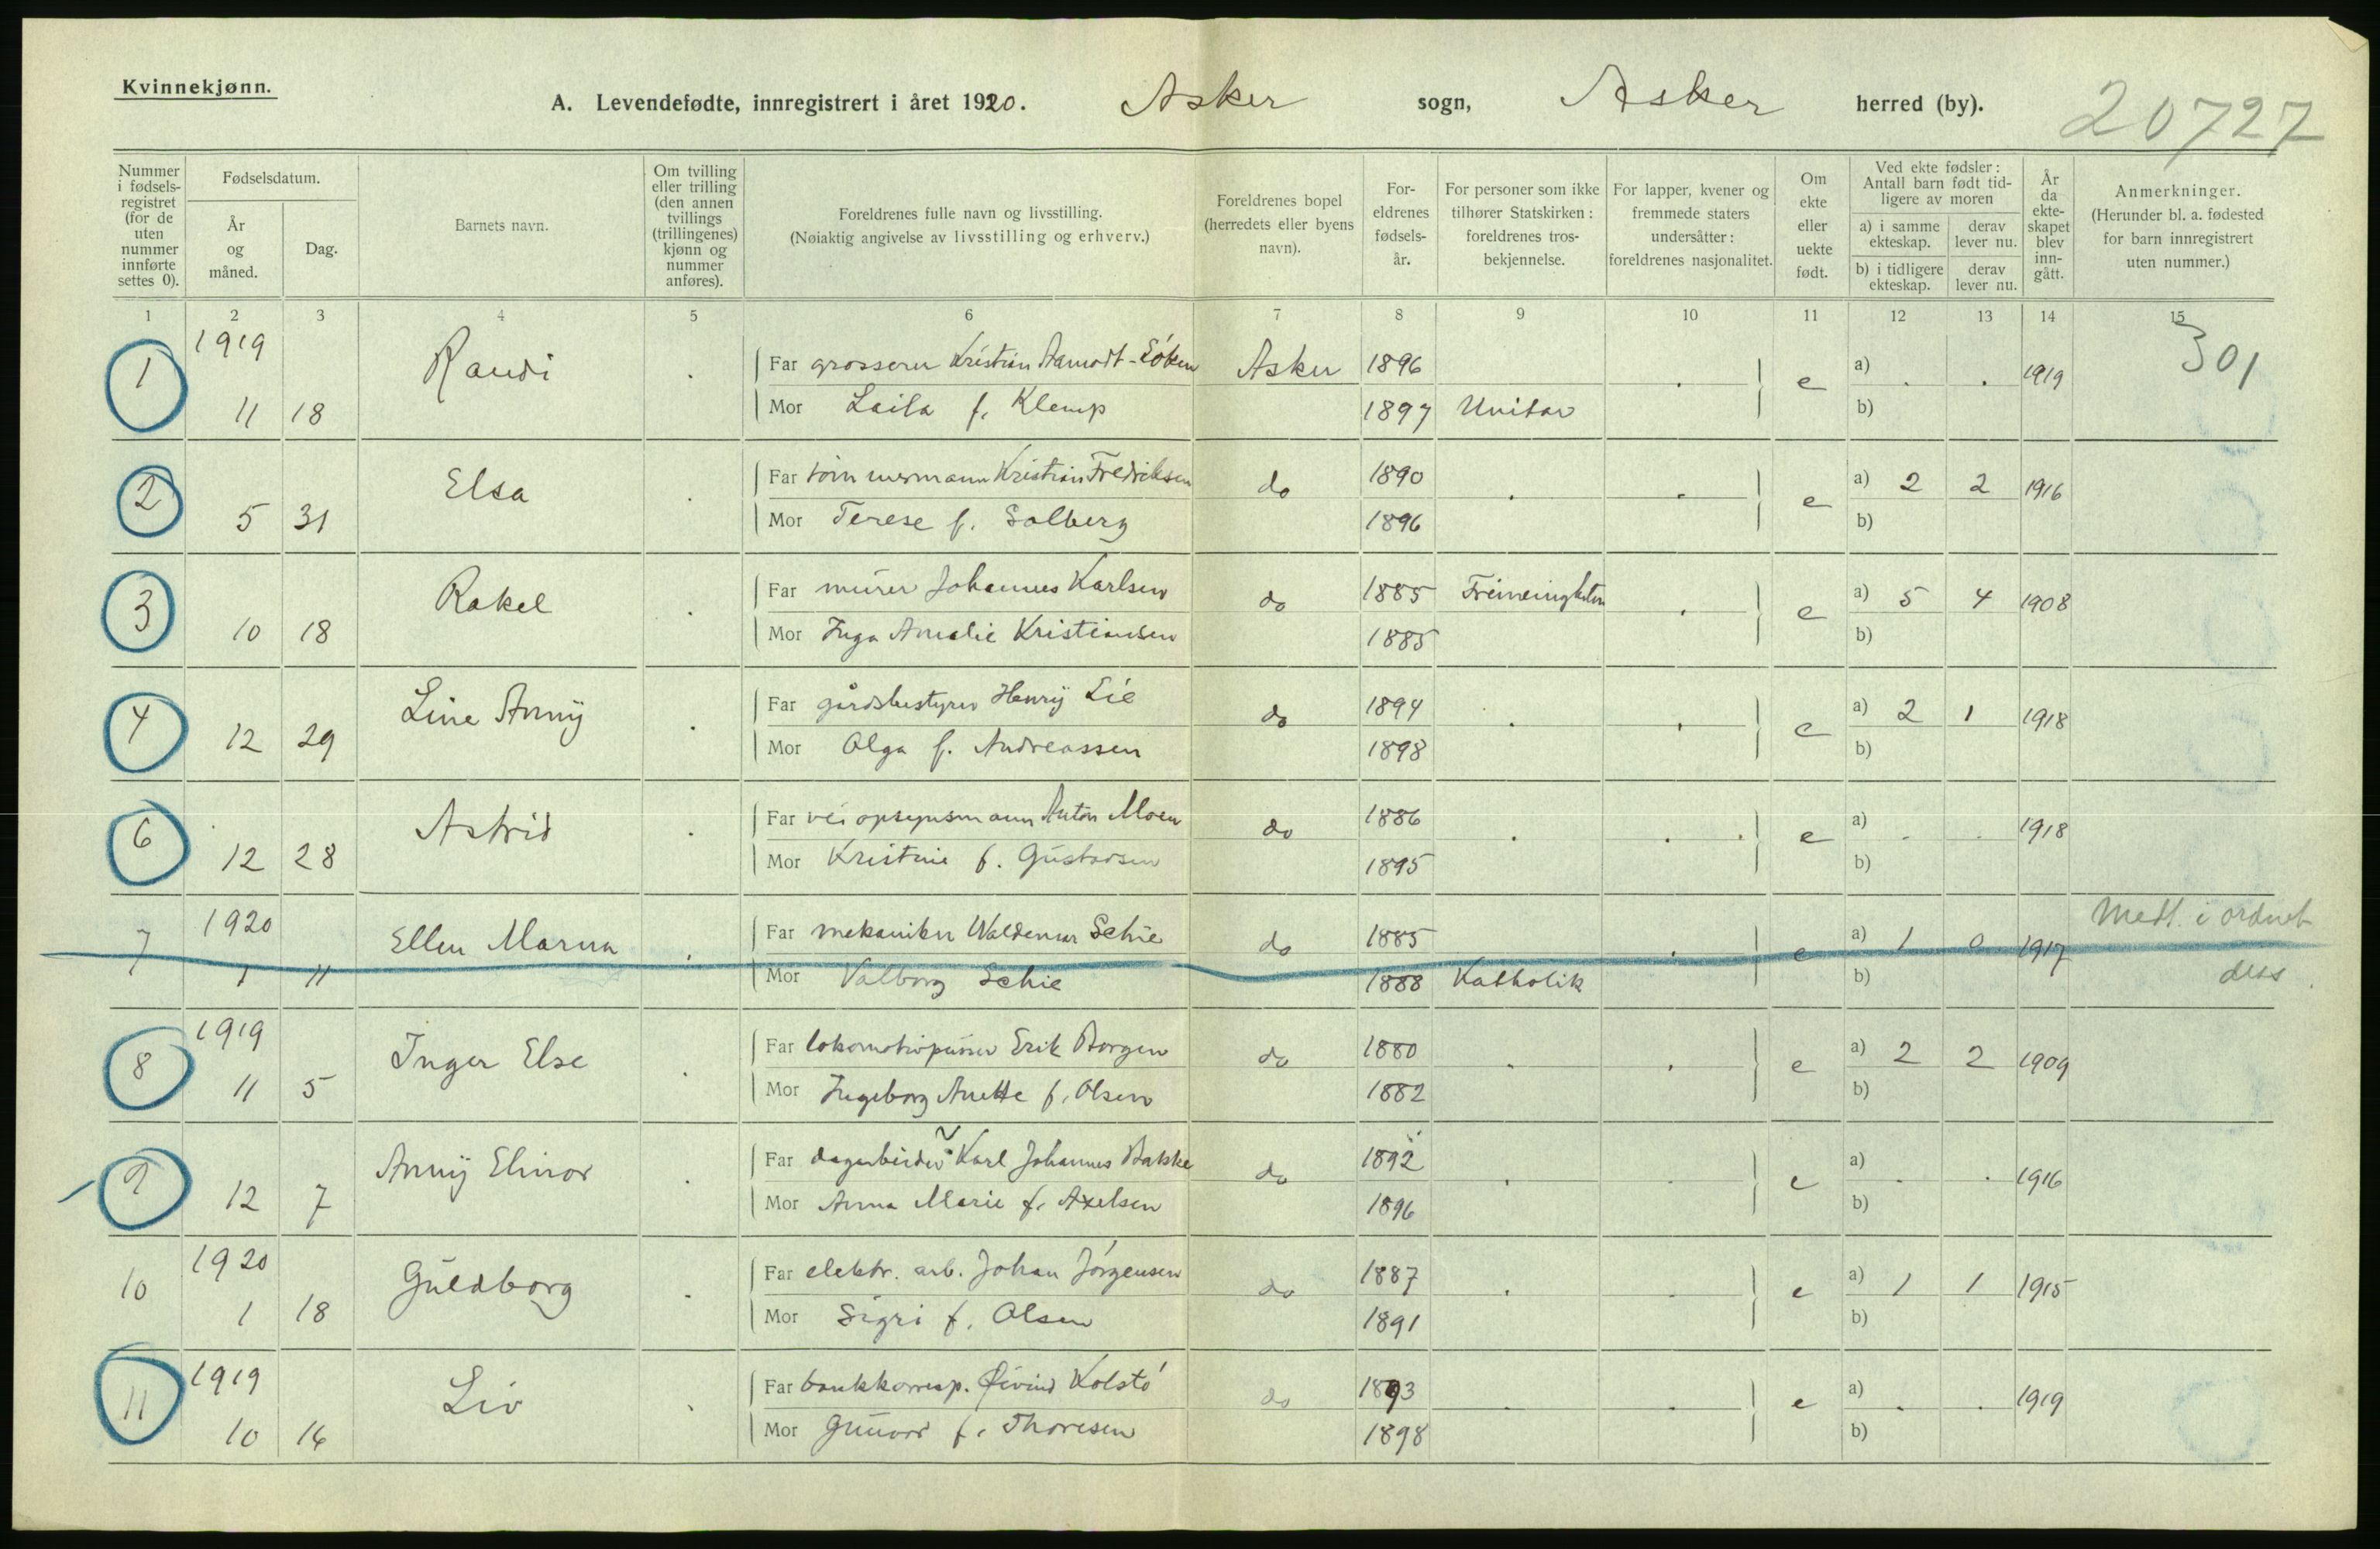 Kvinnekjønn.
A. Levendefødte, innregistrert i året 1920. Asker sogn, Asker herred (by). 20727
Nummer i fødsels-registret (for de uten nummer innførte settes 0).
Fødselsdatum.
År og måned.
Dag.
Barnets navn.
Om tvilling eller trilling (den annen tvillings (trillingenes) kjønn og nummer anføres).
Foreldrenes fulle navn og livsstilling.
(Nøiaktig angivelse av livsstilling og erhverv.)
Foreldrenes bopel (herredets eller byens navn).
For-eldrenes fødsels-år.
For personer som ikke tilhører Statskirken: foreldrenes tros-bekjennelse.
For lapper, kvener og fremmede staters undersåtter: foreldrenes nasjonalitet.
Om ekte eller uekte født.
Ved ekte fødsler: Antall barn født tid-ligere av moren
a) i samme ekteskap. derav lever nu.
b) i tidligere ekteskap. derav lever nu.
År da ekte-skapet blev inn-gått.
Anmerkninger.
(Herunder bl. a. fødested for barn innregistrert uten nummer.)
1 2 3 4 5 6 7 8 9 10 11 12 13 14 15
301
1 1919 11 18 Randi . Far grosserer Kristian Aamodt-Söken Asker 1896 . e a) . . 1919
Mor Laila f. Klemp 1897 Unitar b)
2 5 31 Elsa . Far tömmermann Kristian Fredriksen do 1890 . . e a) 2 2 1916
Mor Terese f. Solberg 1896 b)
3 10 18 Rakel . Far murer Johannes Karlsen do 1885 . e a) 5 4 1908
Mor Inga Amalie Kristiansen 1885 b)
4 12 29 Line Anny . Far gårdsbestyrer Henry Lie do 1894 . . e a) 2 1 1918
Mor Olga f. Andreassen 1898 b)
6 12 28 Astrid . Far veiopsynsmann Anton Moen do 1886 . . . e a) . . 1918
Mor Kristine f. Gustavsen 1895 b)
7 1920 1 11 Ellen Marna . Far mekaniker Waldemar Schie do 1885 . e a) 1 0 1917 Medt. i ordnet
Mor Valborg Schie 1888 Katholik b) dess
8 1919 11 5 Inger Else . Far lokomotivpusser Erik Borgen do 1880 . . e a) 2 2 1909
Mor Ingeborg Anette f. Olsen 1882 b)
9 12 7 Anny Elinor . Far dagarbeider Karl Johannes Bakke do 1892 . . e a) . . 1916
Mor Anna Marie f. Axelsen 1896 b)
10 1920 1 18 Guldborg . Far elektr. arb. Johan Jörgensen do 1887 . . e a) 1 1 1915
Mor Sigri f. Olsen 1891 b)
11 1919 10 16 Liv . Far bankkorresp. Øivind Kolstö do 1893 . . e a) . . 1919
Mor Gunvor f. Thoresen 1898 b)